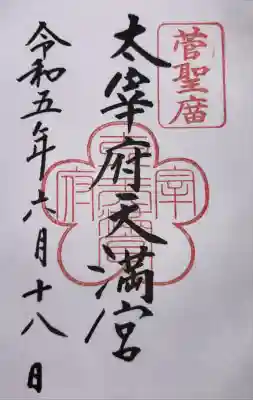 菅聖廟
太宰府天満宮
令和五年六月十八日